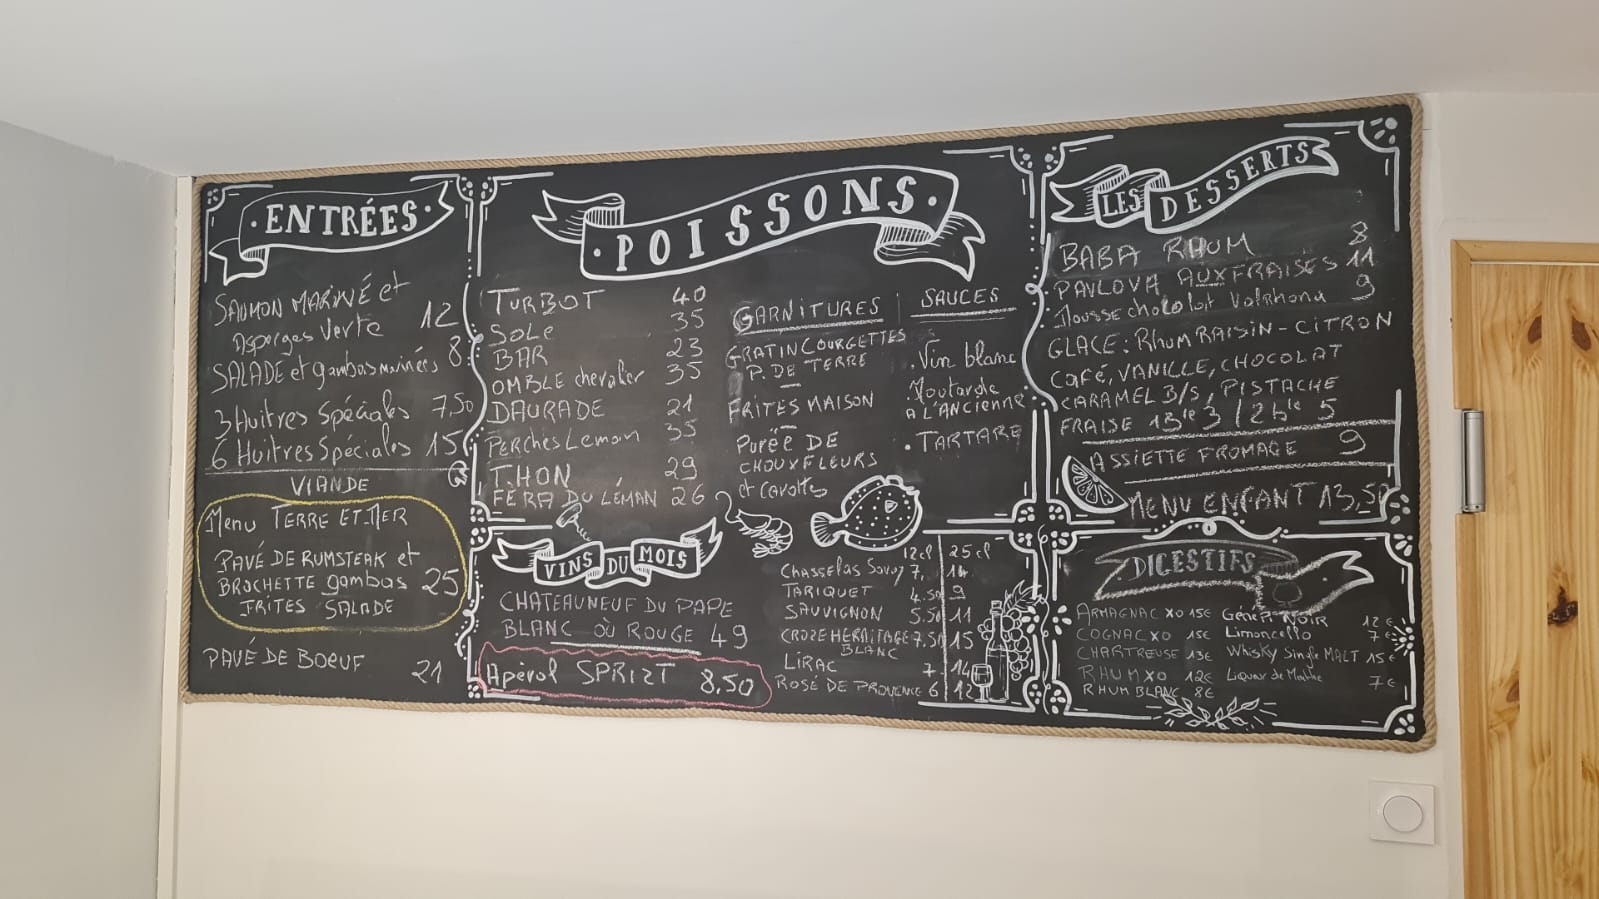 ENTRÉES
SAUMON MARINÉ et
Asperges Verte 12
SALADE et gambas marinées 8
3 Huitres Spéciales 7,50
6 Huitres Spéciales 15
VIANDE
Menu TERRE ET MER
PAVÉ DE RUMSTEAK et
BROCHETTE gambas 25
FRITES SALADE
PAVÉ DE BOEUF 21
POISSONS
TURBOT 40
SOLE 35
BAR 23
OMBLE chevalier 35
DAURADE 21
PERCHES Leman 35
THON 29
FÉRA DU LÉMAN 26
GARNITURES
GRATIN COURGETTES
P. DE TERRE
FRITES MAISON
PURÉE DE
CHOUX FLEURS
et Carottes
SAUCES
. Vin blanc
. Moutarde
A L'ANCIENNE
. TARTARE
VINS DU MOIS
CHATEAUNEUF DU PAPE
BLANC OÙ ROUGE 49
Apérol SPRIZT 8,50
12cl 25cl
CHASSELAS Savoy 7, 14
TARIQUET 4.50 9
SAUVIGNON 5.50 11
CROZE HERMITAGE 7.50 15
BLANC
LIRAC 7 14
ROSÉ DE PROVENCE 6 12
LES DESSERTS
BABA RHUM 8
PAVLOVA AUX FRAISES 11
Mousse chocolat Valrhona 9
GLACE: Rhum RAISIN - CITRON
CAFÉ, VANILLE, CHOCOLAT
CARAMEL B/S, PISTACHE
FRAISE 1Ble 3 / 2 ble 5
ASSIETTE FROMAGE 9
MENU ENFANT 13,50
DIGESTIFS
ARMAGNAC XO 15€ Génépi NOIR 12€
COGNAC XO 15€ Limoncello 7€
CHARTREUSE 13€ Whisky Single MALT 15€
RHUM XO 12€ Liqueur de Menthe 7€
RHUM BLANC 8€